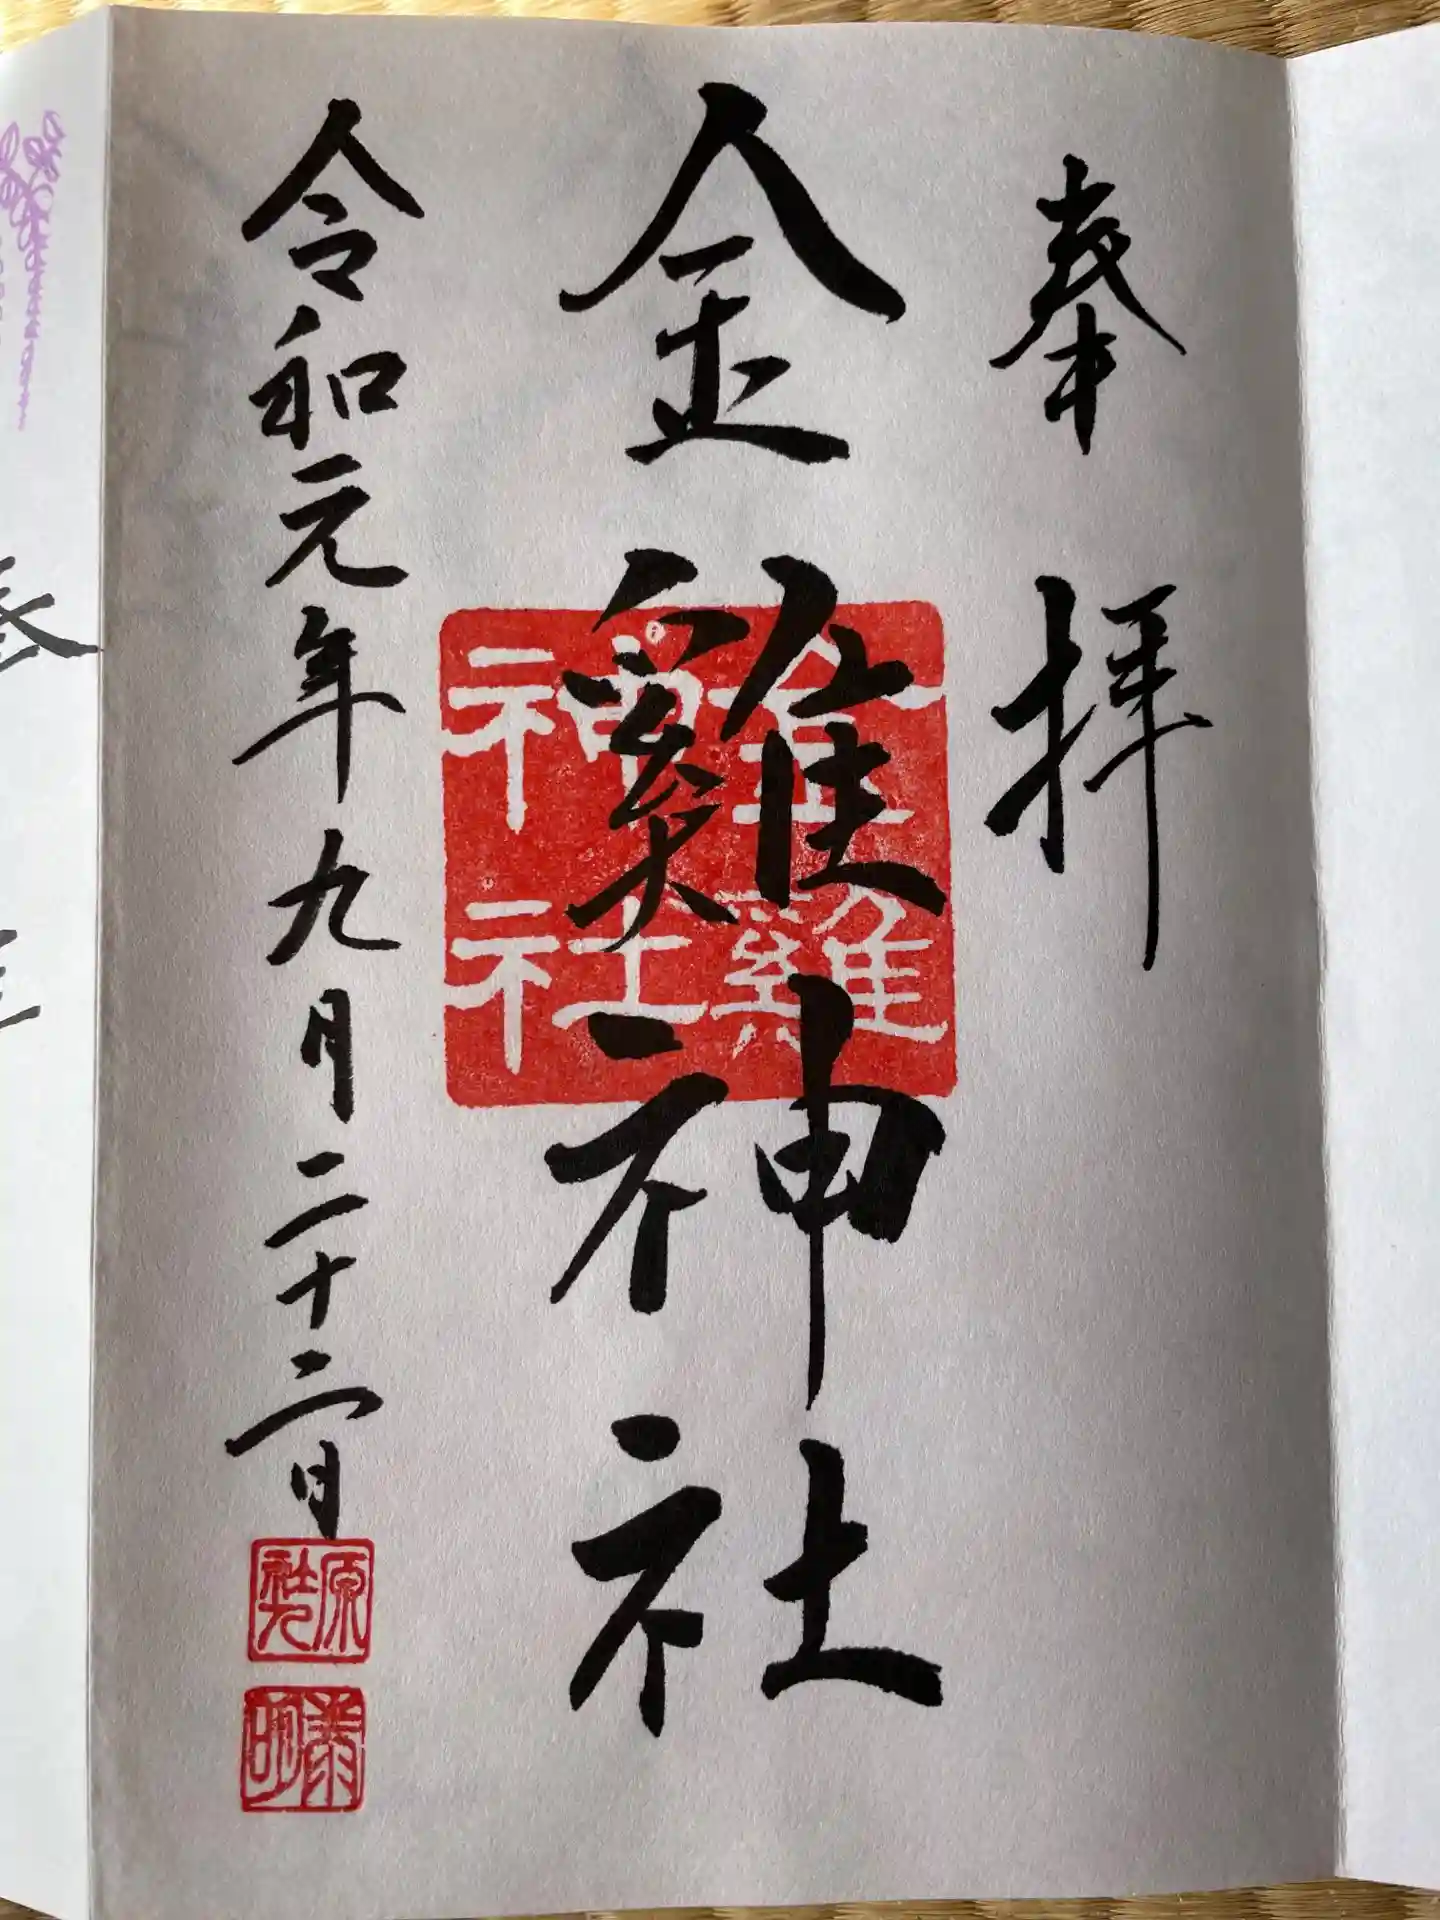 奉拝
金雞神社
金雞
神社
令和元年九月二十二日